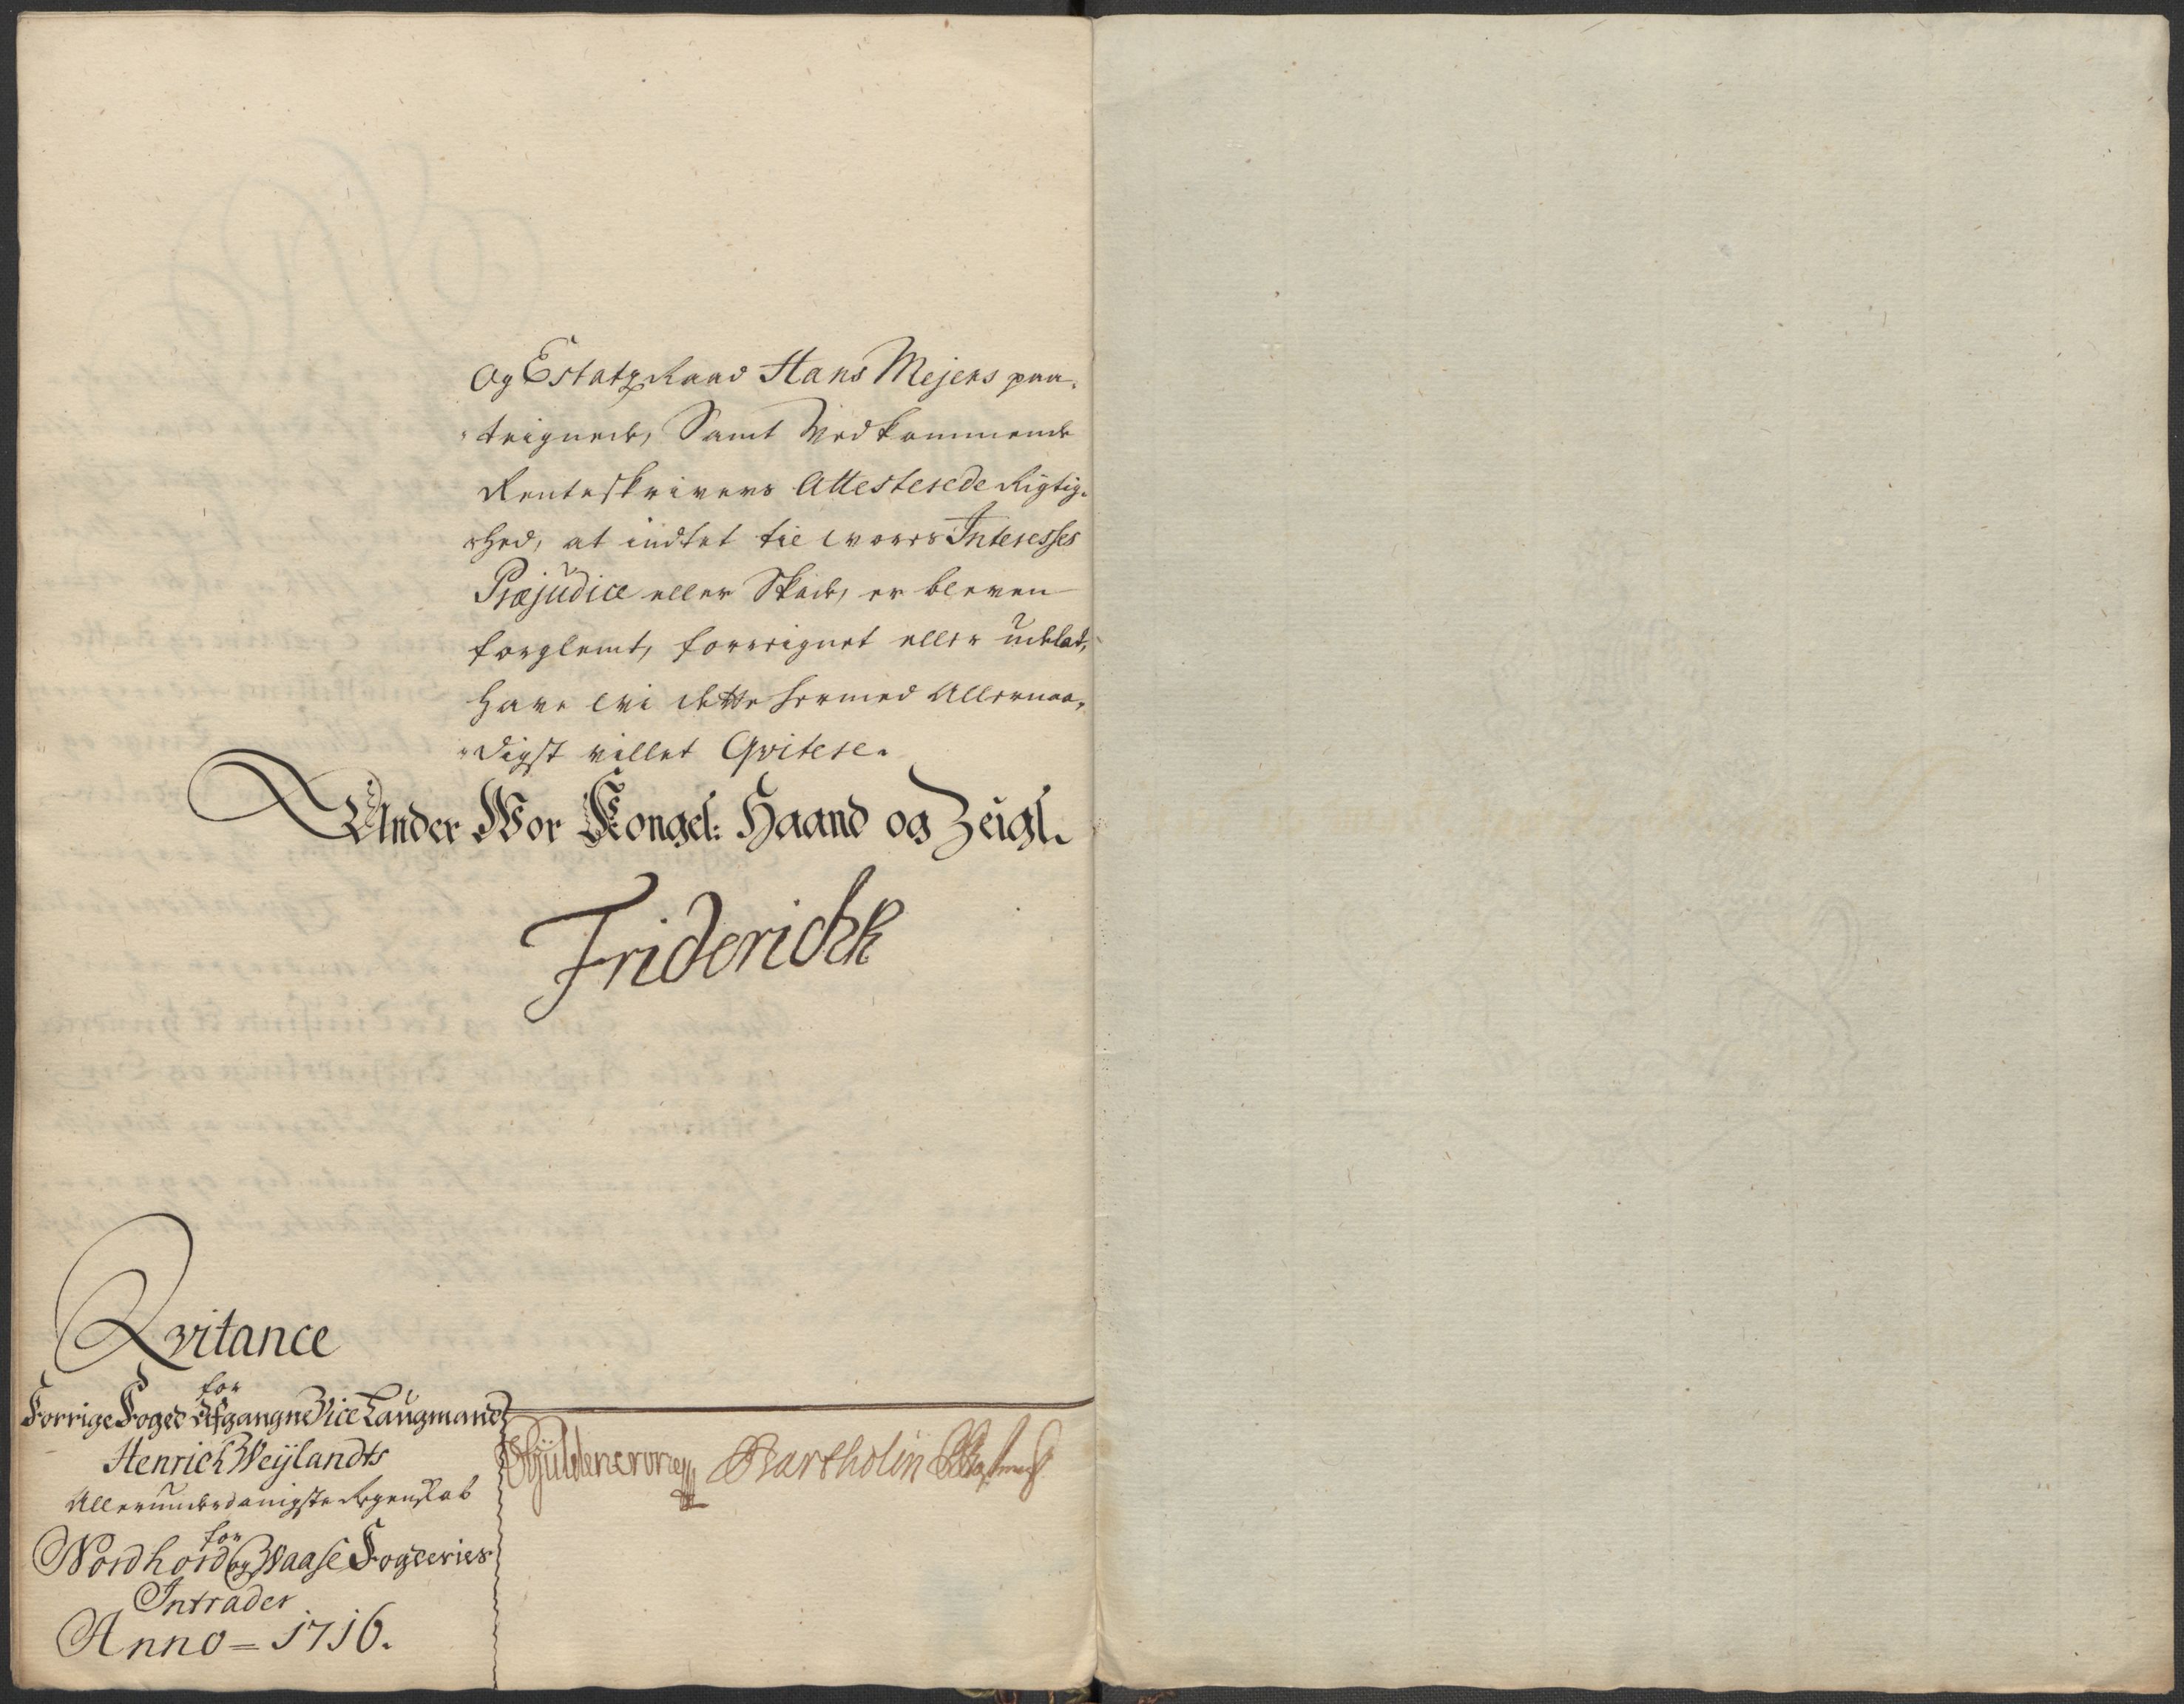 Og Estatz Raad Hans Mejers paa-
teignede, Samt Vedkommende
Renteskrivers Attesterede Rigtig-
hed, at indtet til Wores Interesses
Præjudice eller Skade, er bleven
forglemt, forreignet eller udeladt,
Have Wi dette hermed Allernaa-
digst villet Qvitere.
Under Wor Kongel: Haand og Zeigl.
Friderichk
Qvitance
for
Forrige Foged Afgangne Vice Laugmand
Henrich Weylandts
Allerunderdanigste Regenskab
for
Nordhord og Waase Fogderies
Intrader
Anno = 1716.
Gyldencrone Bartholin